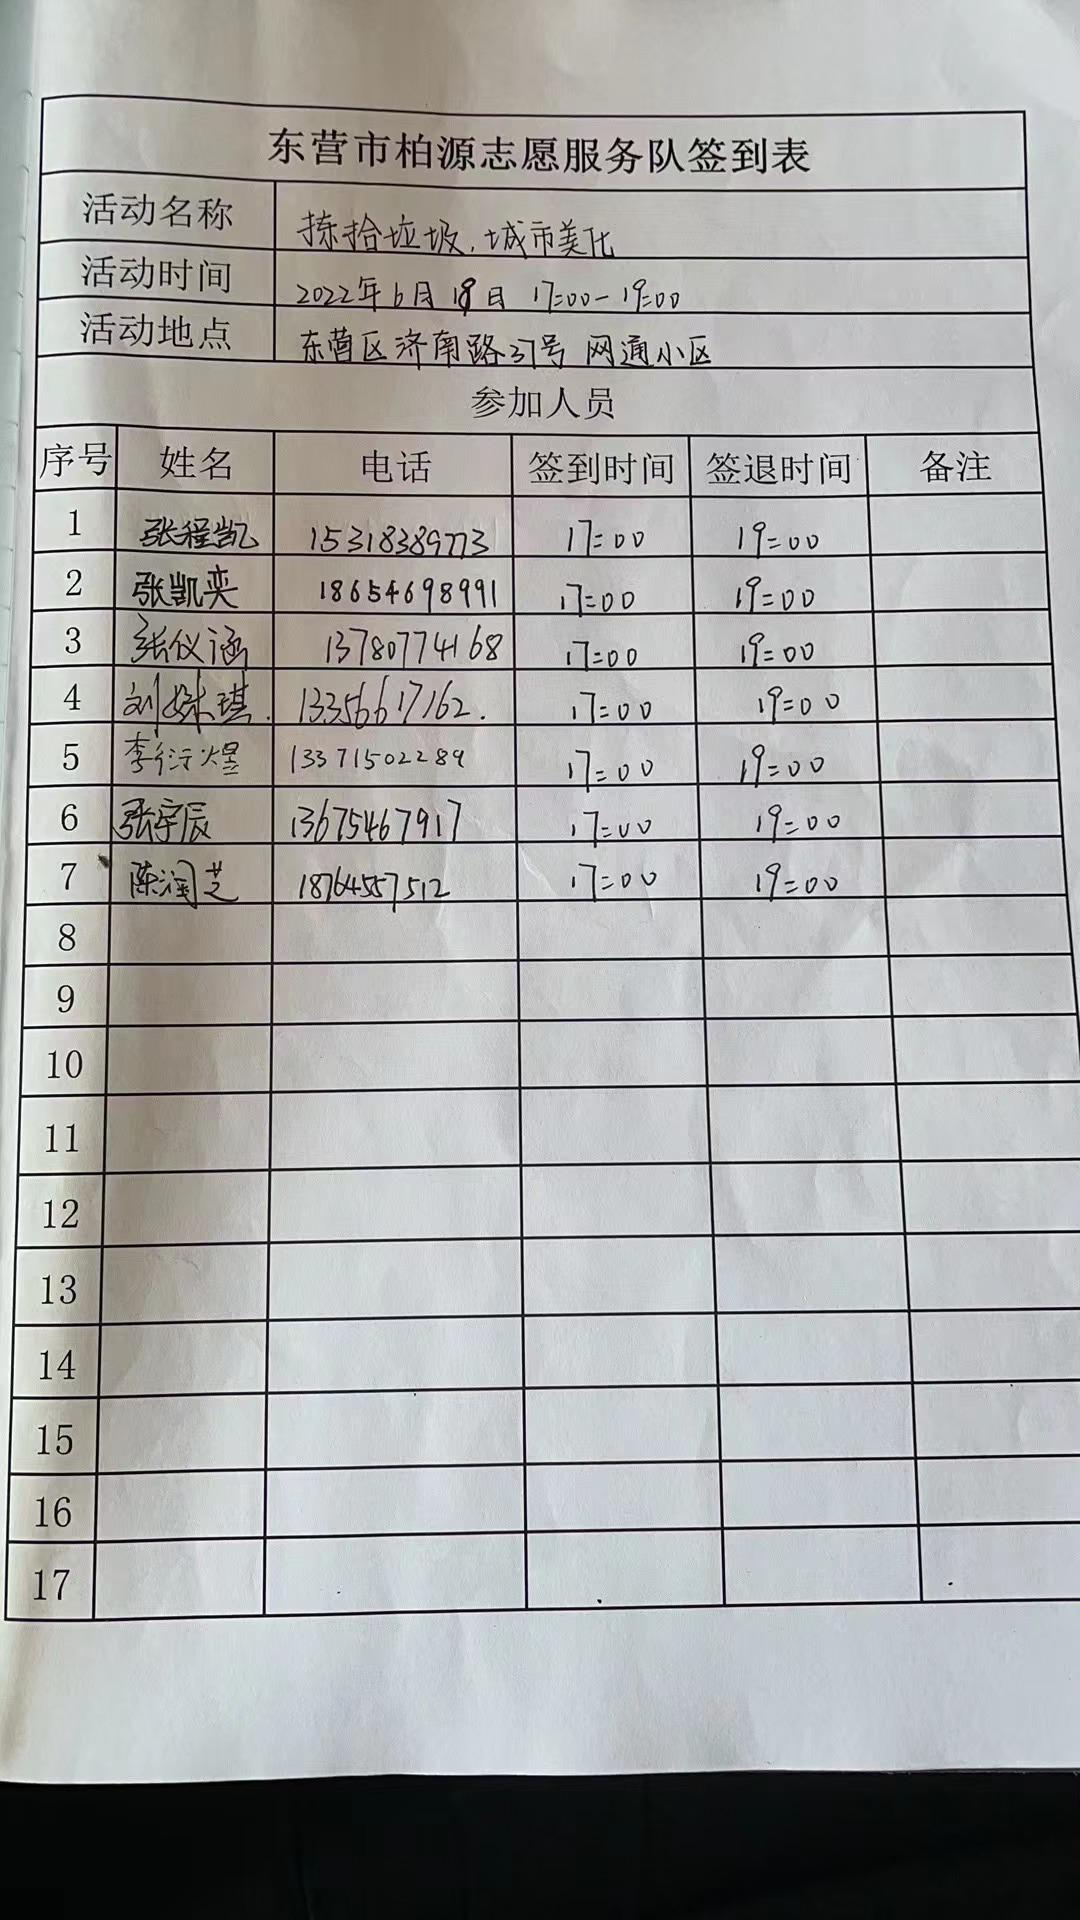 东营市柏源志愿服务队签到表
活动名称 拣拾垃圾、城市美化
活动时间 2022年6月18日 17:00-19:00
活动地点 东营区济南路37号 网通小区
参加人员
序号 姓名 电话 签到时间 签退时间 备注
1 张程凯 15318389773 17:00 19:00
2 张凯奕 18654698991 17:00 19:00
3 张仪涵 13780774168 17:00 19:00
4 刘姝琪. 13356617162. 17:00 19:00
5 李衍煜 13371502289 17:00 19:00
6 张宇辰 13675467917 17:00 19:00
7 陈润芝 18764557512 17:00 19:00
8
9
10
11
12
13
14
15
16
17